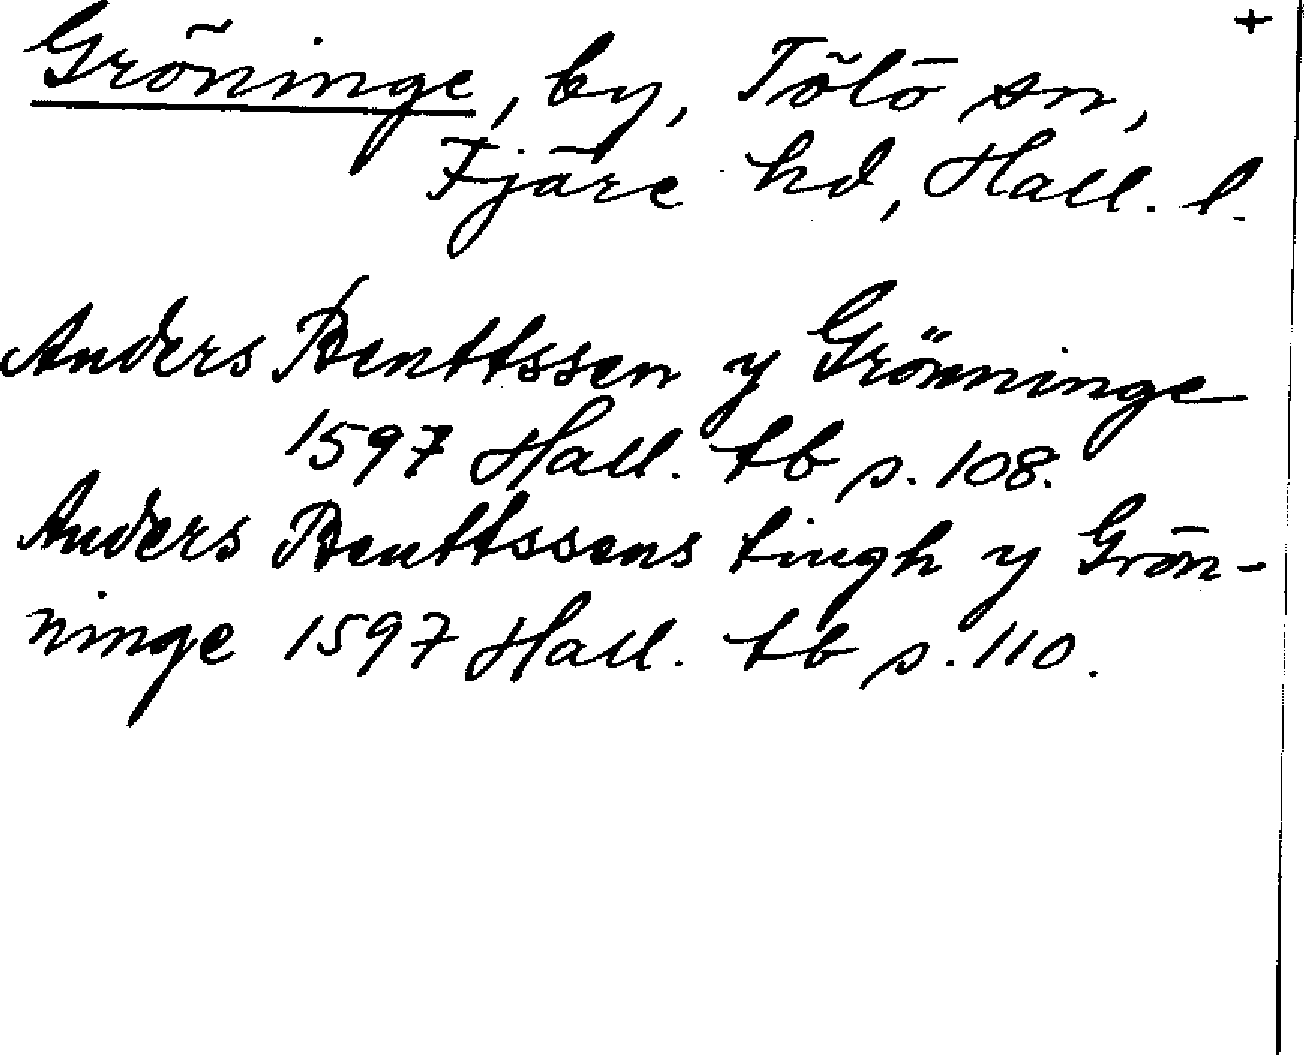 +
Gröninge, by, Tölö sn,
Fjäre hd, Hall. l.
Anders Benttssen y Grönninge
1597 Hall. tb s. 108.
Anders Benttssens tingh y Grön-
ninge 1597 Hall. tb s. 110.